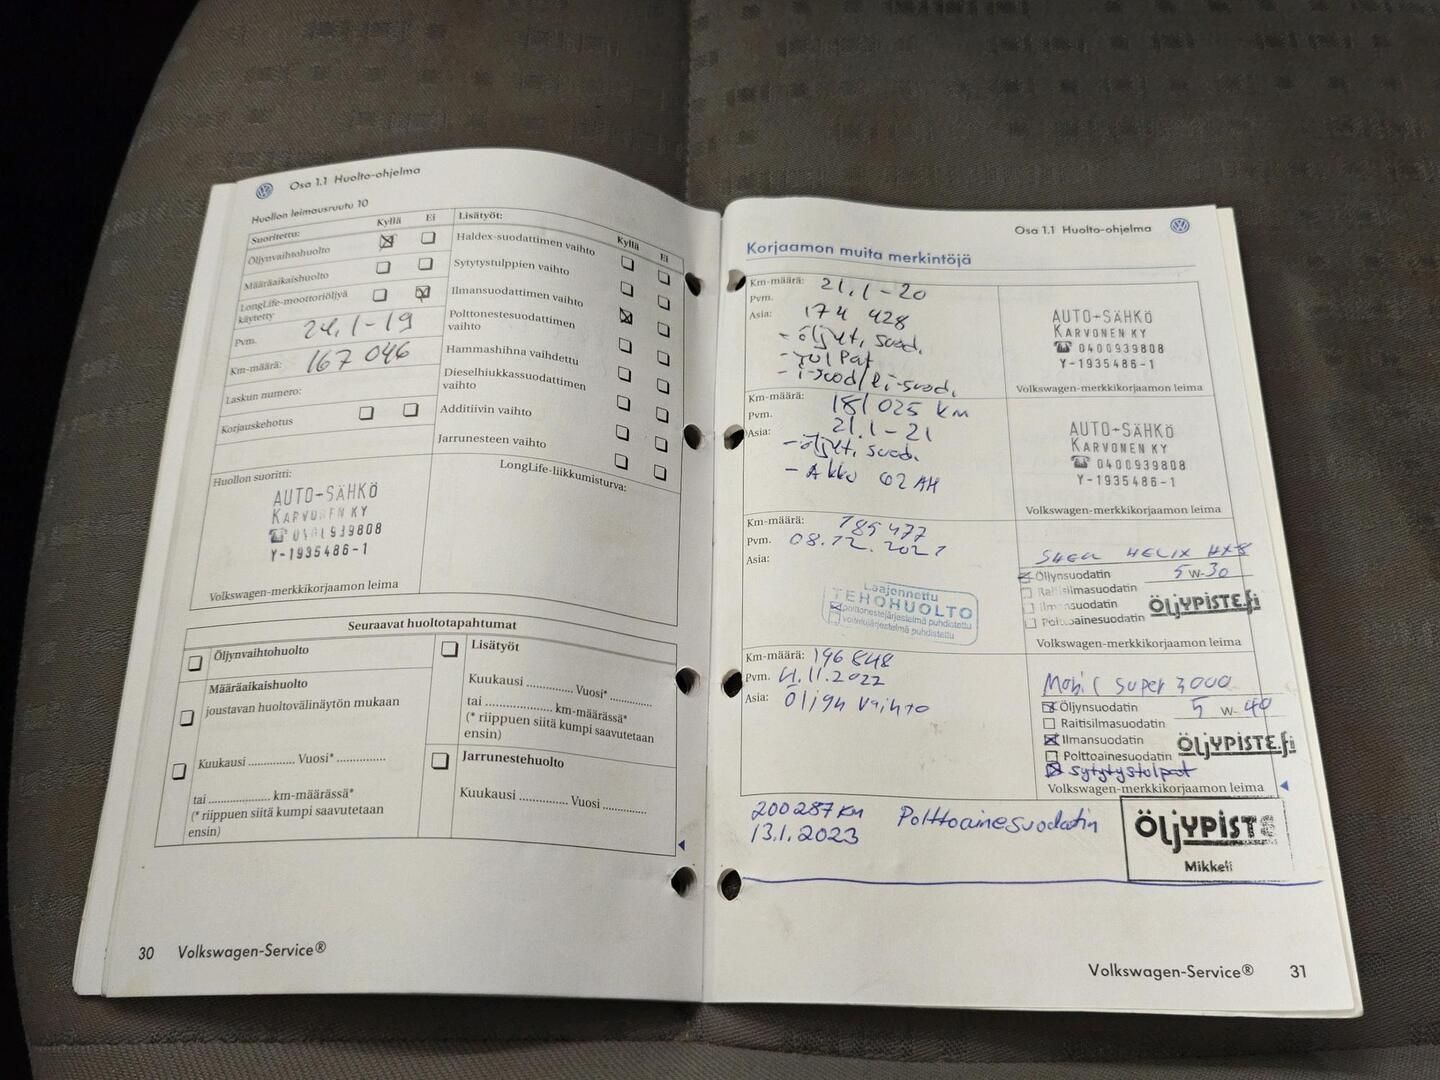 Osa 1.1 Huolto-ohjelma
Huollon leimausruutu 10
Suoritettu:
Kyllä
Ei
Öljynvaihtohuolto
Määräaikaishuolto
LongLife-moottoriöljyä
käytetty
Pvm.
24.1-19
Km-määrä:
167 046
Laskun numero:
Korjauskehotus
Huollon suoritti:
AUTO-SÄHKÖ
KARVONEN KY
☎ 0400939808
Y-1935486-1
Volkswagen-merkkikorjaamon leima
Lisätyöt:
Kyllä
Ei
Haldex-suodattimen vaihto
Sytytystulppien vaihto
Ilmansuodattimen vaihto
Polttonestesuodattimen
vaihto
Hammashihna vaihdettu
Dieselhiukkassuodattimen
vaihto
Additiivin vaihto
Jarrunesteen vaihto
LongLife-liikkumisturva:
Seuraavat huoltotapahtumat
Öljynvaihtohuolto
Määräaikaishuolto
joustavan huoltovälinäytön mukaan
Kuukausi .............. Vuosi* ..............
tai ................. km-määrässä*
(* riippuen siitä kumpi saavutetaan
ensin)
Lisätyöt
Kuukausi .............. Vuosi* ..............
tai .................... km-määrässä*
(* riippuen siitä kumpi saavutetaan
ensin)
Jarrunestehuolto
Kuukausi .............. Vuosi .............
30 Volkswagen-Service®
Osa 1.1 Huolto-ohjelma
Korjaamon muita merkintöjä
Km-määrä:
21.1-20
Pvm.
Asia:
174 428
- öljyt, suod.
- tulpat
- i-suod/ri-suod.
AUTO-SÄHKÖ
KARVONEN KY
☎ 0400939808
Y-1935486-1
Volkswagen-merkkikorjaamon leima
Km-määrä:
181 025 km
Pvm.
21.1-21
Asia:
- öljyt, suod.
- Akku 62 AH
AUTO-SÄHKÖ
KARVONEN KY
☎ 0400939808
Y-1935486-1
Volkswagen-merkkikorjaamon leima
Km-määrä: 189 477
Pvm. 08.12.2021
Asia:
Laajennettu
TEHOHUOLTO
polttonestejärjestelmä puhdistettu
voitelujärjestelmä puhdistettu
SHELL HELIX HX8
Öljynsuodatin 5 W-30
Raitisilmasuodatin
Ilmansuodatin
Polttoainesuodatin
ÖLJYPISTE.fi
Volkswagen-merkkikorjaamon leima
Km-määrä: 196 848
Pvm. 4.11.2022
Asia: Öljyn vaihto
Mobil super 3000
Öljynsuodatin 5 W-40
Raitisilmasuodatin
Ilmansuodatin
Polttoainesuodatin
sytytystulpat
ÖLJYPISTE.fi
Volkswagen-merkkikorjaamon leima
200 287 km
13.1.2023
Polttoainesuodatin
ÖLJYPISTE
Mikkeli
Volkswagen-Service® 31